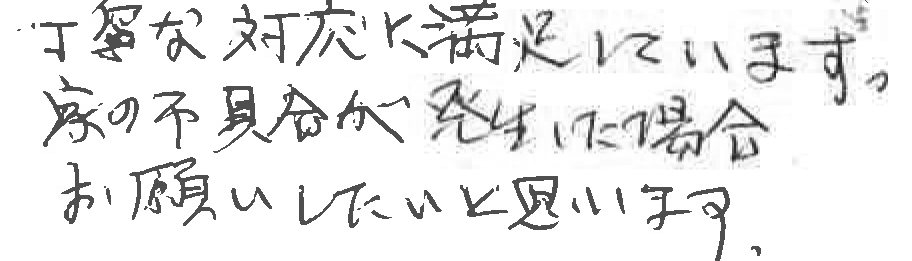 丁寧な対応に満足しています。
家の不具合が発生した場合
お願いしたいと思います。